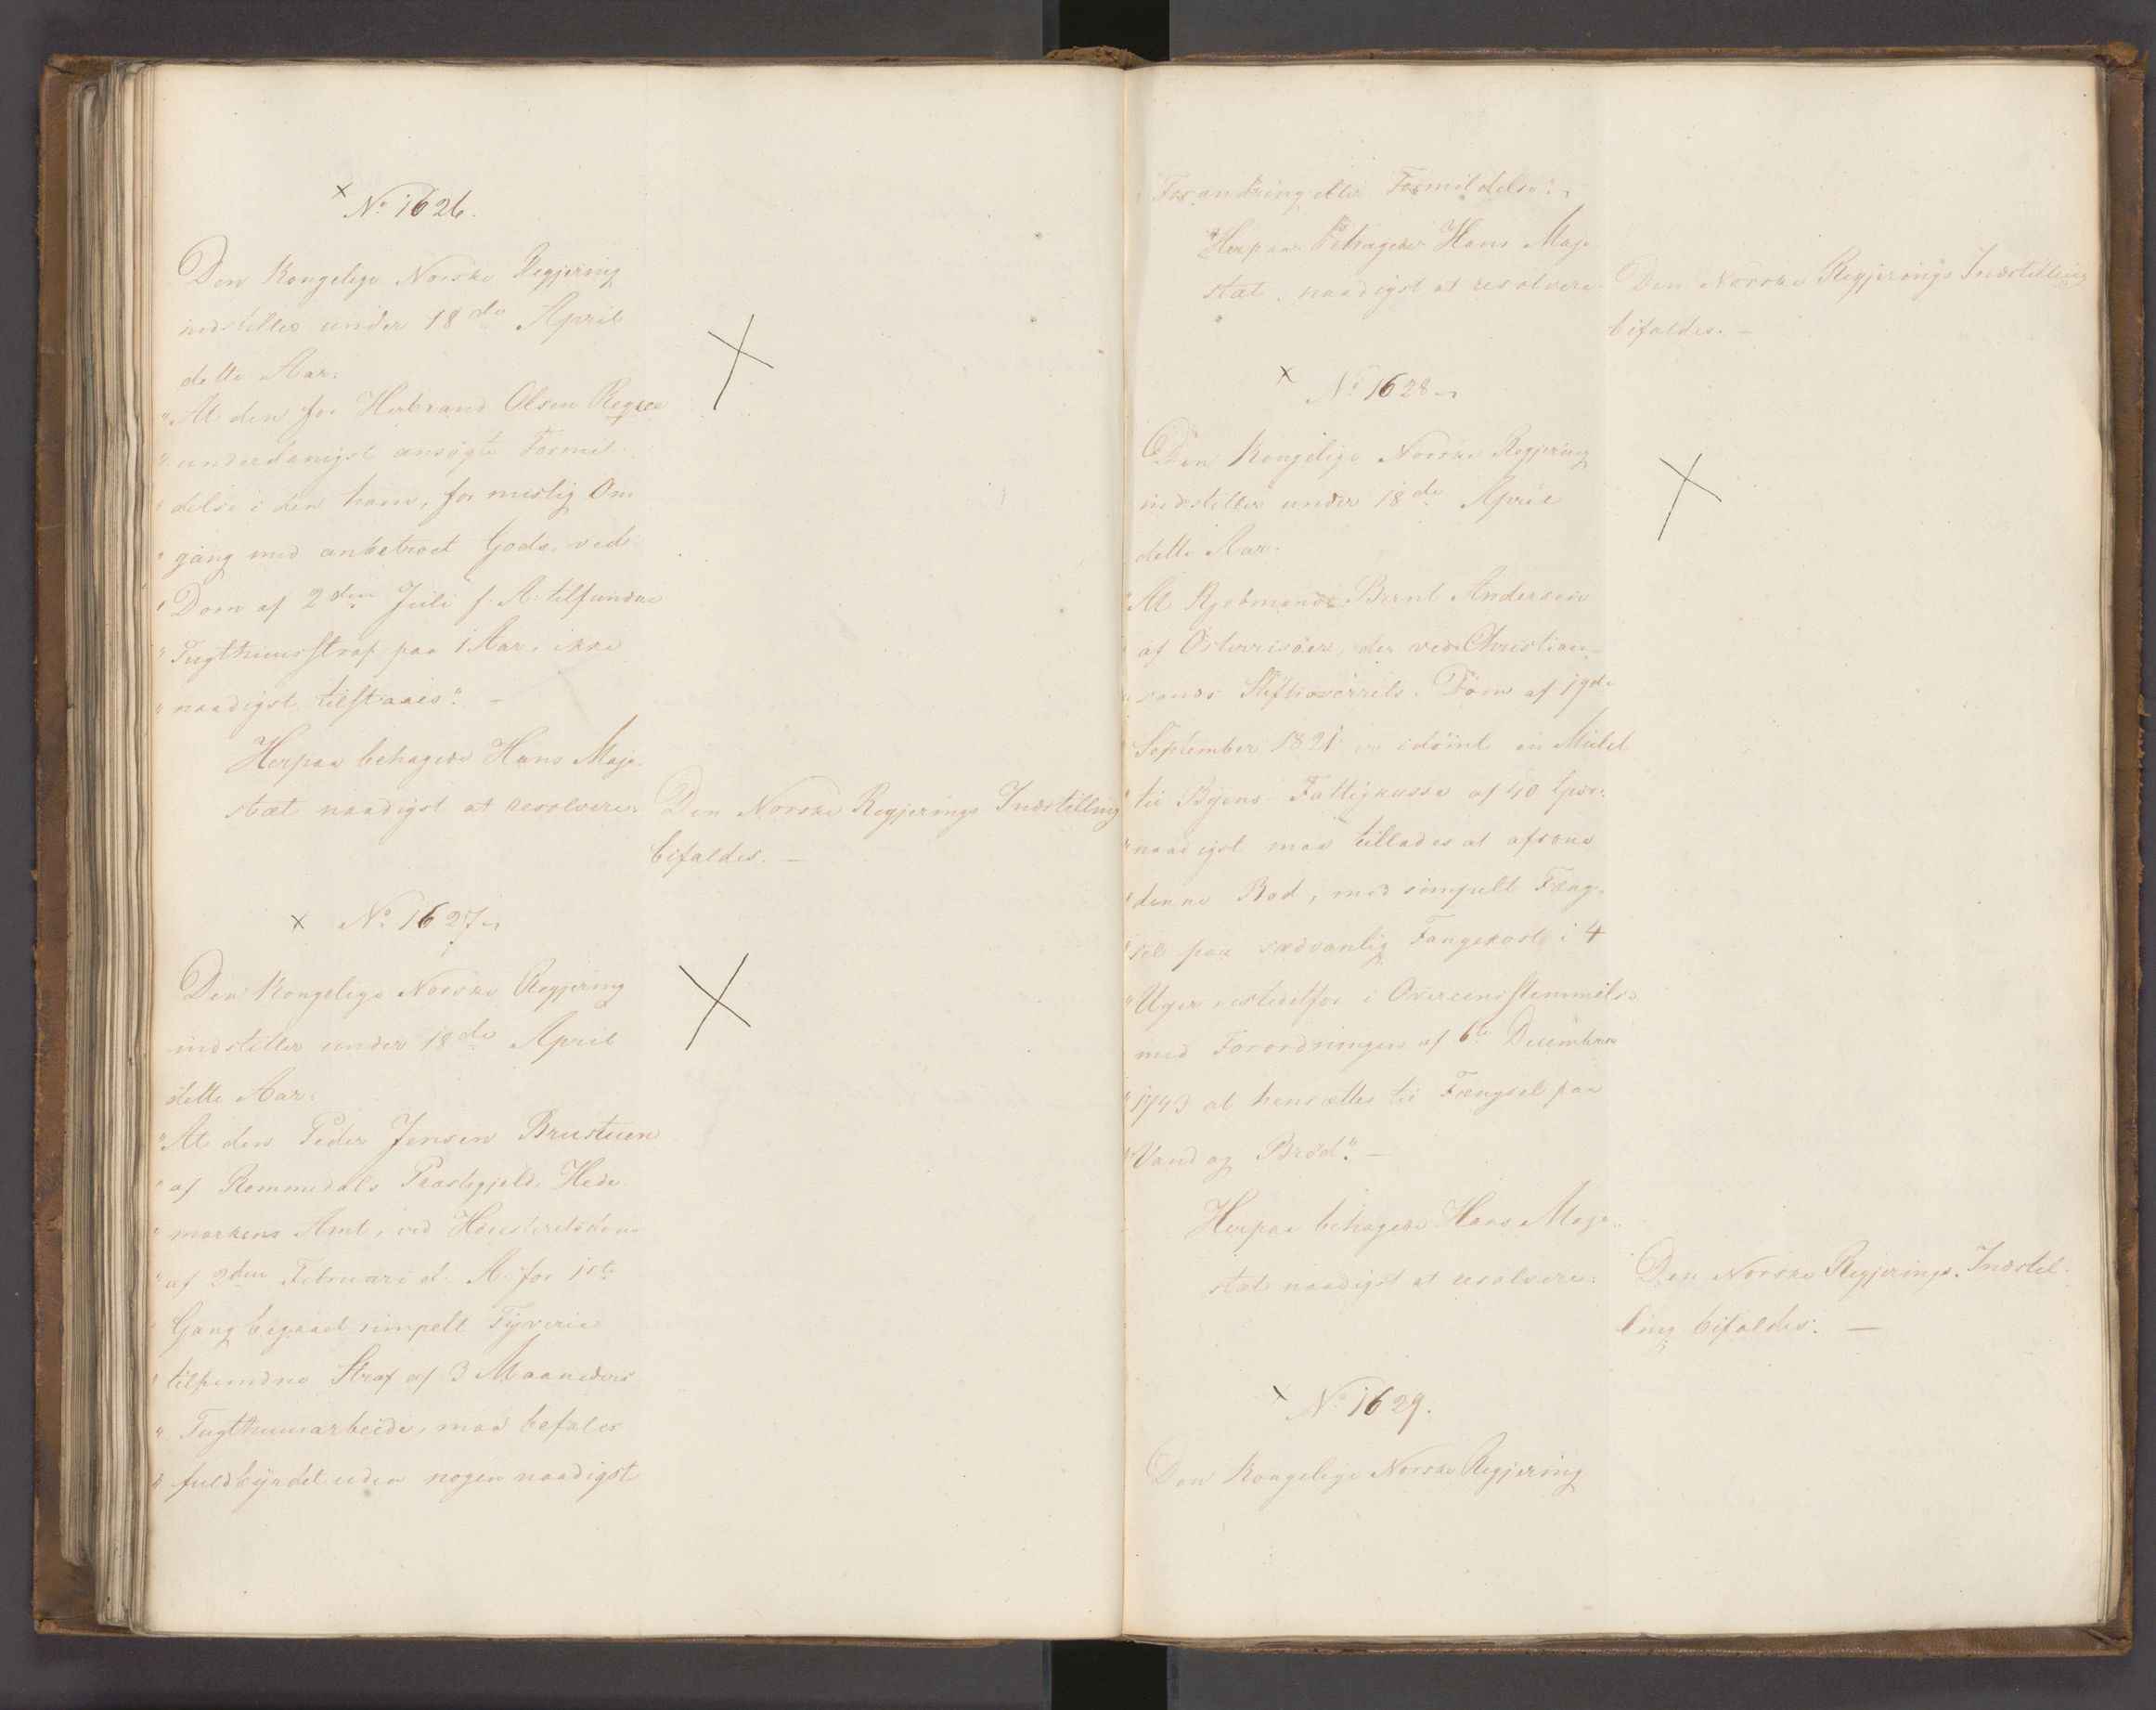 × No 1626.
Den Kongelige Norske Regjering
indstiller under 18de April
dette Aar:
"At den for Herbrand Olsen
" underdanigst ansøgte Formil-
" delse i den ham, for mislig Om
" gang med anbetroet Gods, ved
" Dom af 2den Juli f: A: tilfundne
" Tugthuusstraf paa 1 Aar, ikke
" naadigst tilstaaes". -
Herpaa behagede Hans Maje-
stæt naadigst at resolvere:
Den Norske Regjerings Indstilling
bifaldes. -
× No 1627.
Den Kongelige Norske Regjering
indstiller under 18de April
dette Aar:
"At den Peder Jensen Brustuen
" af Rommedals Præstegjeld, Hede-
" markens Amt, ved Høiesteretsdom
" af 2den Februari d. A. for 1ste
" Gang begaaet simpelt Tyverie
" tilfundne Straf af 3 Maaneders
" Tugthuusarbeide, maa befales
" fuldbyrdet uden nogen naadigst
" Forandring eller Formildelse".
Herpaa behagede Hans Maje-
stæt naadigst at resolvere:
Den Norske Regjerings Indstilling
bifaldes. -
× No 1628.
Den Kongelige Norske Regjering
indstiller under 18de April
dette Aar:
"At Kjøbmand Bernt Andersen
" af Østerrisøer, der ved Christian-
" sands Stiftsoverrets Dom af 19de
" September 1821 er idømt en Mulct
" til Byens Fattigkasse af 40 Spdr:
" naadigst maa tillades at afsone
" denne Bod, med simpelt Fæng-
" sel paa sædvanlig Fangekost i 4
" Uger istedetfor i Overeensstemmelse
" med Forordningen af 6te December
" 1743 at hensættes til Fængsel paa
" Vand og Brød". -
Herpaa behagede Hans Maje-
stæt naadigst at resolvere:
Den Norske Regjerings Indstil-
ling bifaldes. -
× No 1629.
Den Kongelige Norske Regjering